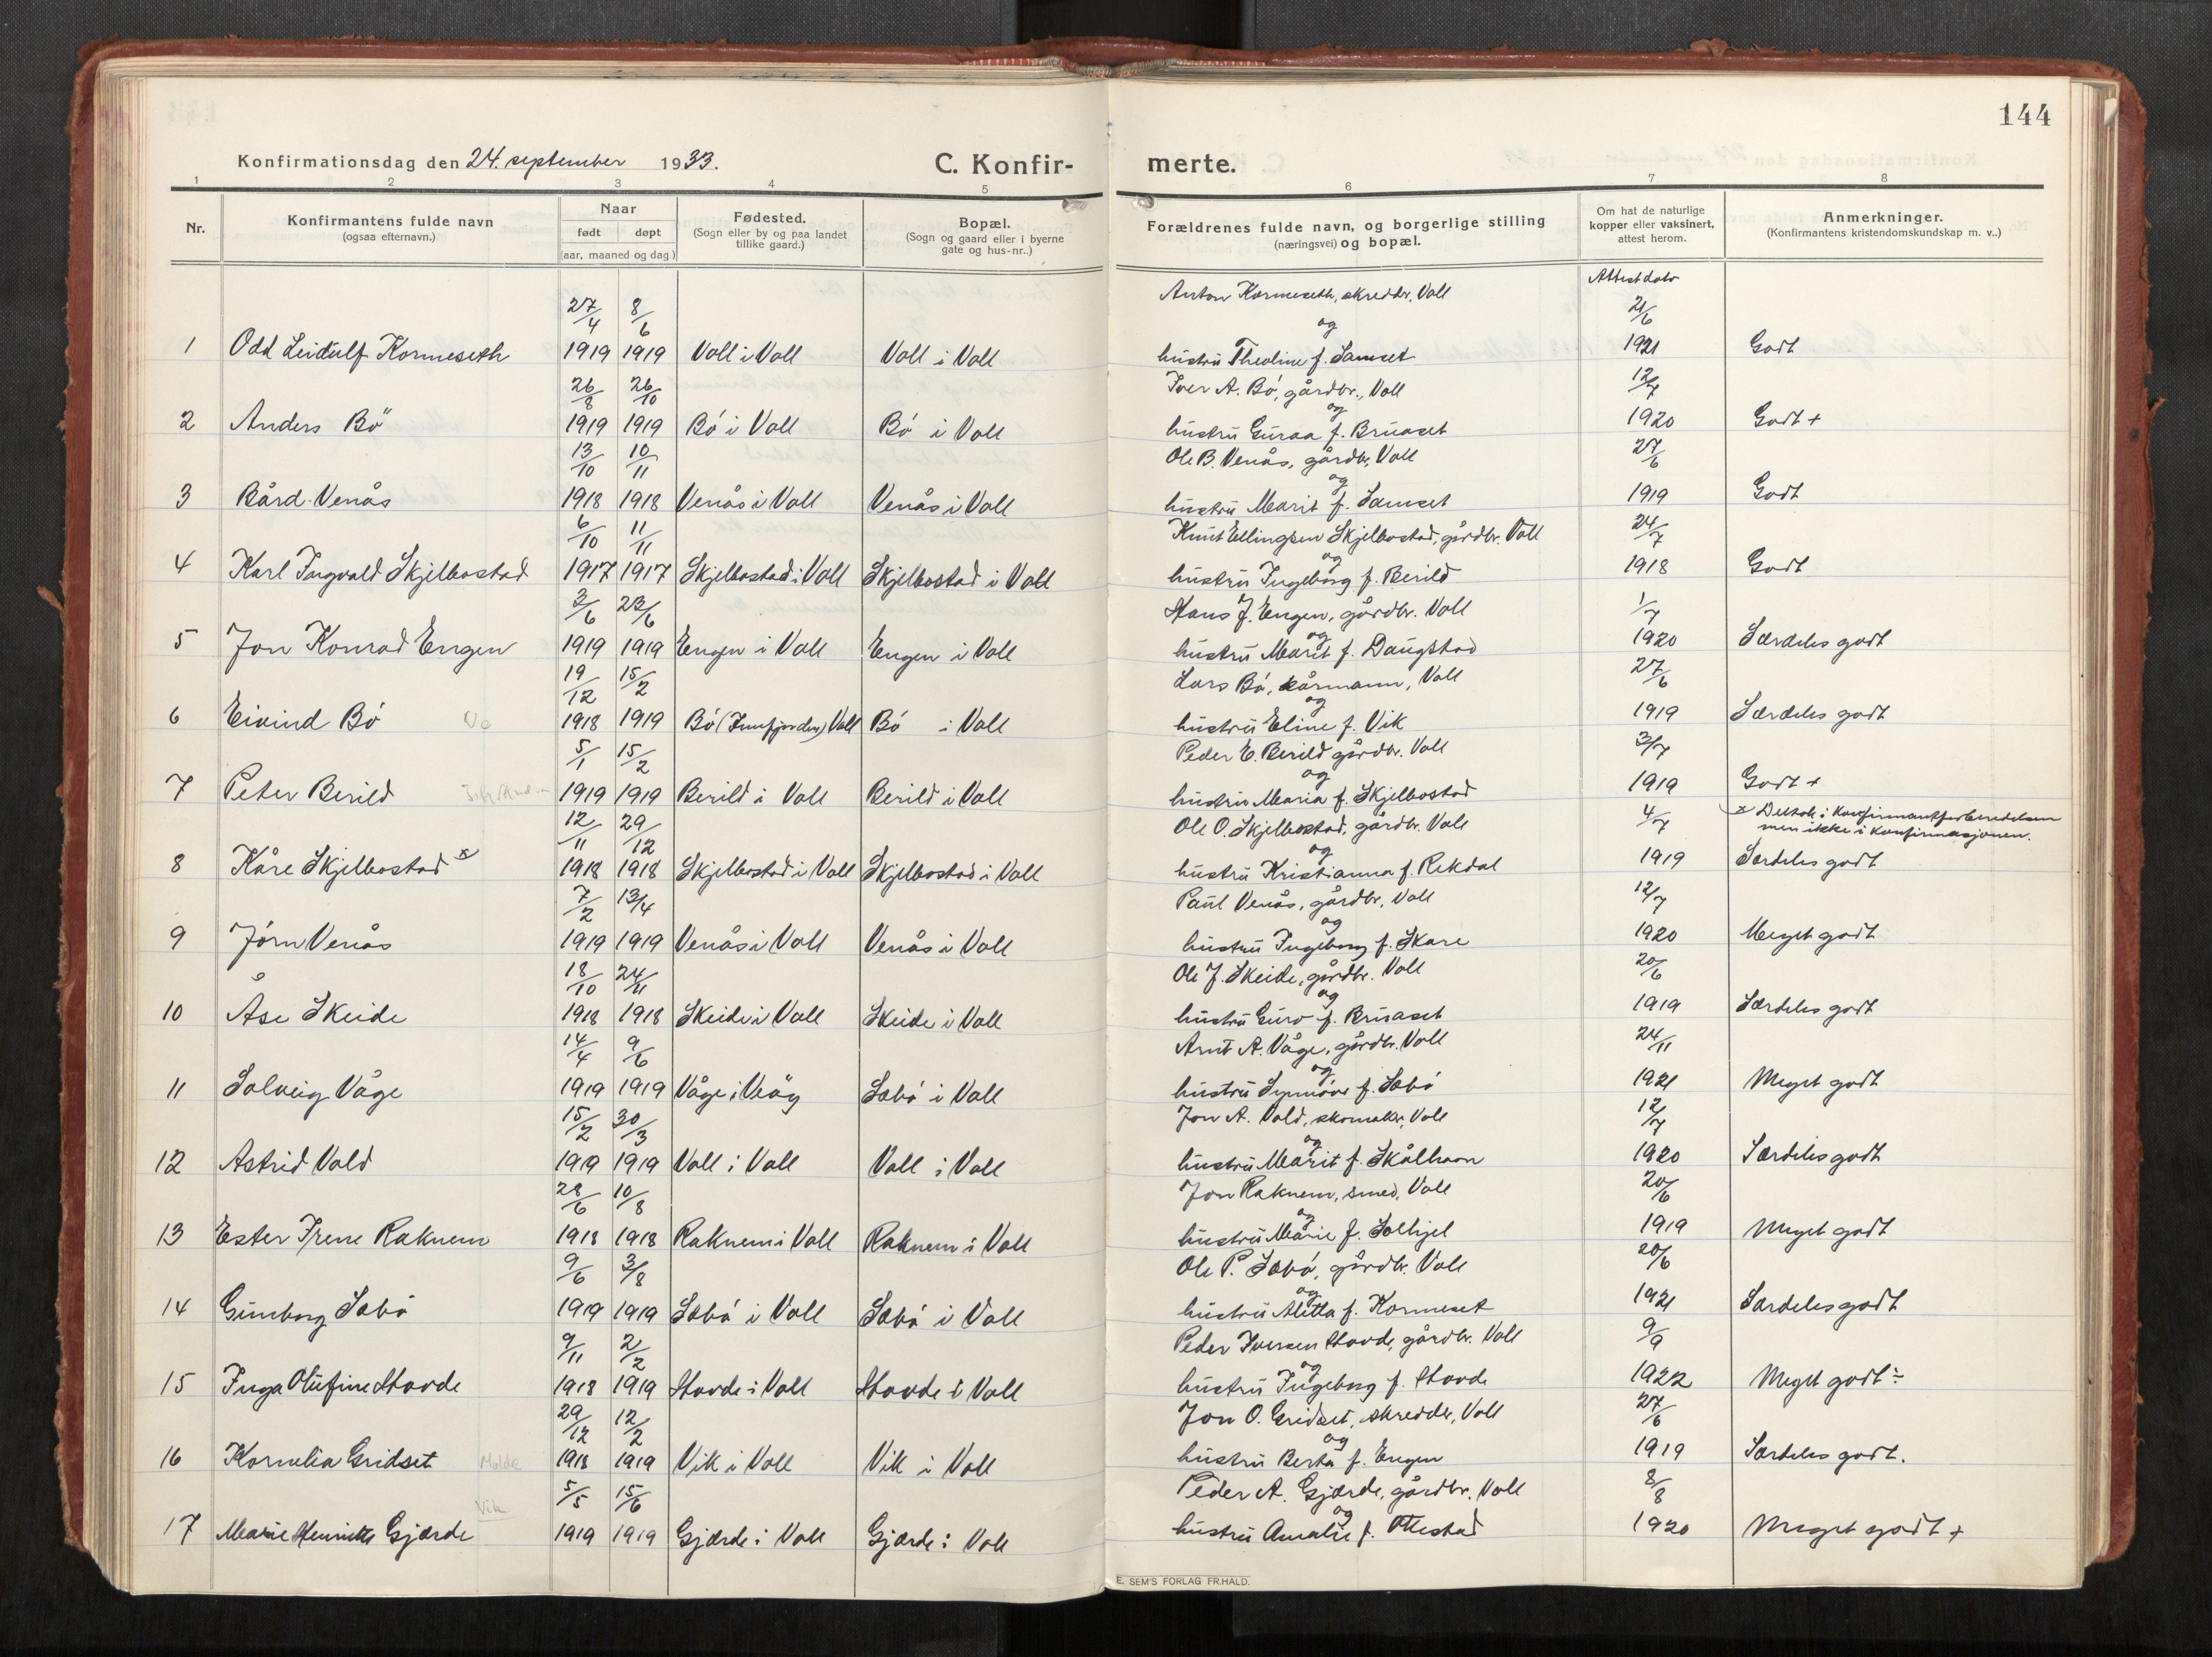 144
Konfirmationsdag den 24. september 1933. C. Konfir- merte.
1 2 3 4 5 6 7 8
Nr. Konfirmantens fulde navn (ogsaa efternavn.) Naar født døpt (aar, maaned og dag.) Fødested. (Sogn eller by og paa landet tillike gaard.) Bopæl. (Sogn og gaard eller i byerne gate og hus-nr..) Forældrenes fulde navn, og borgerlige stilling (næringsvei) og bopæl. Om hat de naturlige kopper eller vaksinert, attest herom. Anmerkninger. (Konfirmantens kristendomskundskap m. v..)
Attest dato
27/4 8/6 Anton Kormeseth, skredder, Voll 21/6
1 Odd Leidulf Kormeseth 1919 1919 Voll i Voll Voll i Voll og hustru Theoline f. Samset 1921 Godt
26/8 26/10 Iver A. Bö, gårdbr., Voll 12/7
2 Anders Bö 1919 1919 Bö i Voll Bö i Voll og hustru Guraa f. Bruaset 1920 Godt +
13/10 10/11 Ole B. Venås, gårdbr, Voll 27/6
3 Bård Venås 1918 1918 Venås i Voll Venås i Voll og hustru Marit f. Samset 1919 Godt
6/10 11/11 Knut Ellingsen Skjelbostad, gårdbr. Voll 24/7
4 Karl Ingvald Skjelbostad 1917 1917 Skjelbostad i Voll Skjelbostad i Voll og hustru Ingeborg f. Berild 1918 Godt
3/6 23/6 Hans J. Engen, gårdbr. Voll 1/7
5 Jon Konrad Engen 1919 1919 Engen i Voll Engen i Voll og hustru Marit f. Daugstad 1920 Særdeles godt
19/12 15/2 Lars Bö, kårmann, Voll 27/6
6 Eivind Bö 1918 1919 Bö (Innfjorden) Voll Bö i Voll og hustru Eline f. Vik 1919 Særdeles godt
5/1 15/2 Peder E. Berild gårdbr. Voll 3/7
7 Peter Berild 1919 1919 Berild i Voll Berild i Voll og hustru Maria f. Skjelbostad 1919 Godt +
12/11 29/12 Ole O. Skjelbostad, gårdbr. Voll 4/7 x Deltok i konfirmantforberedelsen men ikke i konfirmasjonen.
8 Kåre Skjelbostad x 1918 1918 Skjelbostad i Voll Skjelbostad i Voll og hustru Kristianna f. Rekdal 1919 Særdeles godt
7/2 13/4 Paul Venås, gårdbr, Voll 12/7
9 Jörn Venås 1919 1919 Venås i Voll Venås i Voll og hustru Ingeborg f. Skare 1920 Meget godt
18/10 24/11 Ole J. Skeide, gårdbr. Voll 20/6
10 Åse Skeide 1918 1918 Skeide i Voll Skeide i Voll og hustru Guro f. Bruaset 1919 Særdeles godt
14/4 9/6 Arnt A. Våge, gårdbr. Voll 24/11
11 Solveig Våge 1919 1919 Våge i Veöy Sæbö i Voll og hustru Synnöve f. Sæbö 1921 Meget godt
15/2 30/3 Jon A. Vold, skomaker, Voll 12/7
12 Astrid Vold 1919 1919 Voll i Voll Voll i Voll og hustru Marit f. Skålhavn 1920 Særdeles godt
28/6 10/8 Jon Raknem, smed, Voll 20/6
13 Ester Irene Raknem 1918 1918 Raknem i Voll Raknem i Voll og hustru Marie f. Solhjel 1919 Meget godt
9/6 3/8 Ole P. Sæbö, gårdbr. Voll 20/6
14 Gunborg Sæbö 1919 1919 Sæbö i Voll Sæbö i Voll og hustru Alitta f. Kormeset 1921 Særdeles godt
9/11 2/2 Peder Iversen Stavde, gårdbr. Voll 9/9
15 Inga Olufine Stovde 1918 1919 Stovde i Voll Stovde i Voll og hustru Ingeborg f. Stovde 1922 Meget godt ÷
29/12 12/2 Jon O. Gridset, skredder, Voll 27/6
16 Kornelia Gridset Molde 1918 1919 Vik i Voll Vik i Voll og hustru Berta f. Engen 1919 Særdeles godt.
Vik 5/5 15/6 Peder A. Gjærde, gårdbr. Voll 8/8
17 Marie Henrikke Gjærde 1919 1919 Gjærde i Voll Gjærde i Voll og hustru Amalie f. Ottestad 1920 Meget godt +
E. SEM'S FORLAG FR.HALD.